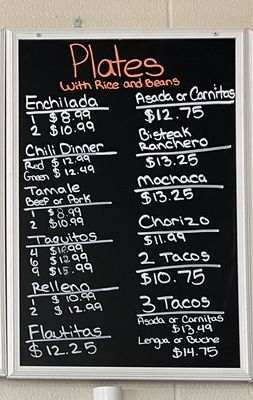 Plates
With Rice and Beans
Enchilada
1 $8.99
2 $10.99
Chili Dinner
Red $12.99
Green $12.49
Tamale
Beef or Pork
1 $8.99
2 $10.99
Taquitos
4 $10.99
6 $12.99
9 $15.99
Relleno
1 $10.99
2 $12.99
Flautitas
$12.25
Asada or Carnitas
$12.75
Bisteak
Ranchero
$13.25
Machaca
$13.25
Chorizo
$11.99
2 Tacos
$10.75
3 Tacos
Asada or Carnitas
$13.49
Lengua or Buche
$14.75